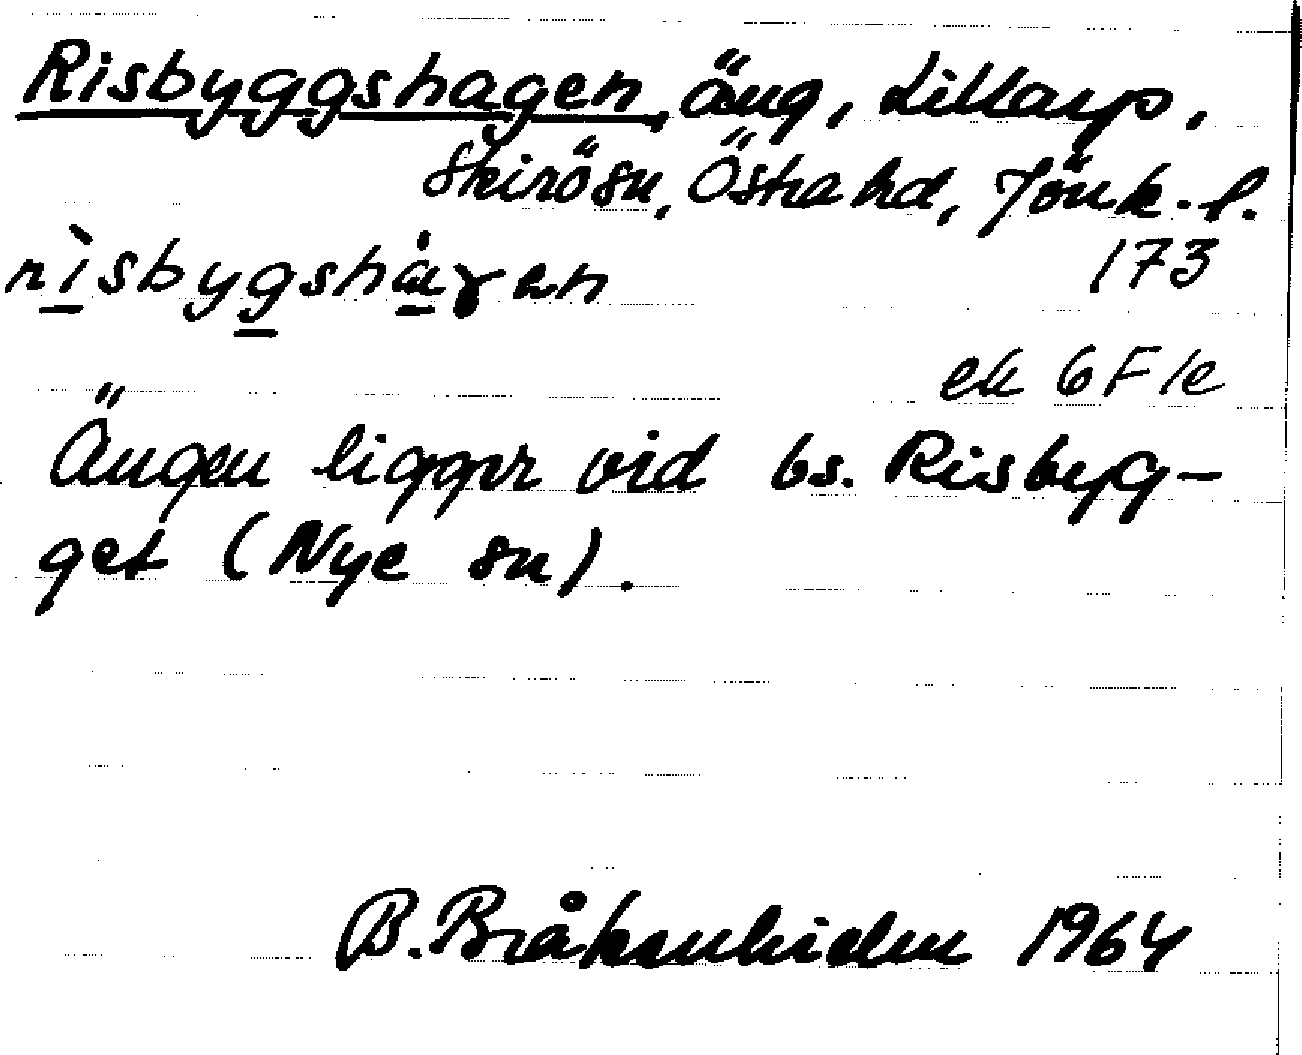 Risbyggshagen, äng, Lillarp,
Skirö sn, Östra hd, Jönk. l.
rìsbygshȧɣen
173
ek 6F1e
Ängen ligger vid bs. Risbyg-
get (Nye sn).
B. Bråkenhielm 1964